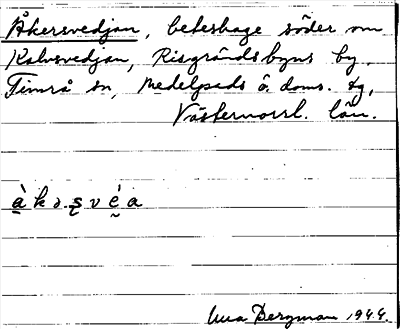 Åkersvedjan, beteshage söder om
Kalvsvedjan, Risgrändsbyns by.
Timrå sn, Medelpads ö. doms. tg,
Västernorrl. län.
Bergman 1944.